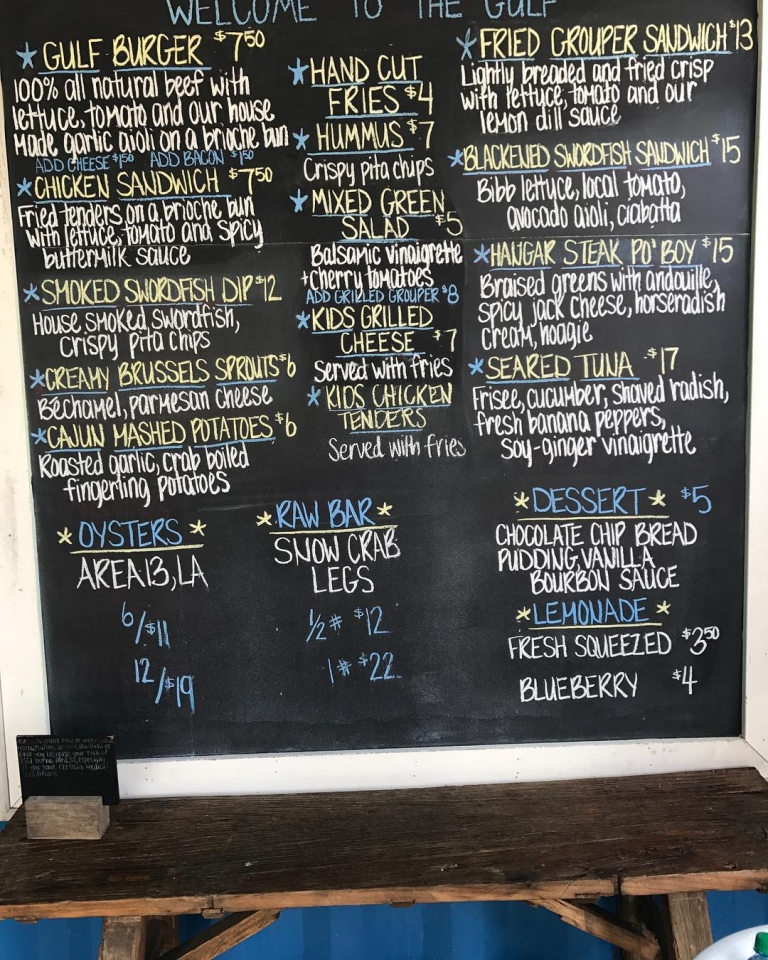 WELCOME TO THE GULF
GULF BURGER $7.50
100% all natural beef with
lettuce, tomato and our house
made garlic aioli on a brioche bun
ADD CHEESE $1.50 ADD BACON $1.50
CHICKEN SANDWICH $7.50
Fried tenders on a brioche bun
with lettuce, tomato and spicy
buttermilk sauce
SMOKED SWORDFISH DIP $12
House smoked swordfish,
crispy pita chips
CREAMY BRUSSELS SPROUTS $6
Bechamel, parmesan cheese
CAJUN MASHED POTATOES $6
Roasted garlic, crab boiled
fingerling potatoes
HAND CUT
FRIES $4
HUMMUS $7
Crispy pita chips
MIXED GREEN
SALAD $5
Balsamic vinaigrette
+cherry tomatoes
ADD GRILLED GROUPER $8
KIDS GRILLED
CHEESE $7
Served with fries
KIDS CHICKEN
TENDERS
Served with fries
FRIED GROUPER SANDWICH $13
Lightly breaded and fried crisp
with lettuce, tomato and our
lemon dill sauce
BLACKENED SWORDFISH SANDWICH $15
Bibb lettuce, local tomato,
avocado aioli, ciabatta
HANGAR STEAK PO' BOY $15
Braised greens with andouille,
spicy jack cheese, horseradish
cream, hoagie
SEARED TUNA $17
Frisee, cucumber, shaved radish,
fresh banana peppers,
soy-ginger vinaigrette
OYSTERS
AREA 13, LA
6/$11
12/$19
RAW BAR
SNOW CRAB
LEGS
1/2 # $12
1 # $22
DESSERT $5
CHOCOLATE CHIP BREAD
PUDDING, VANILLA
BOURBON SAUCE
LEMONADE
FRESH SQUEEZED $3.50
BLUEBERRY $4